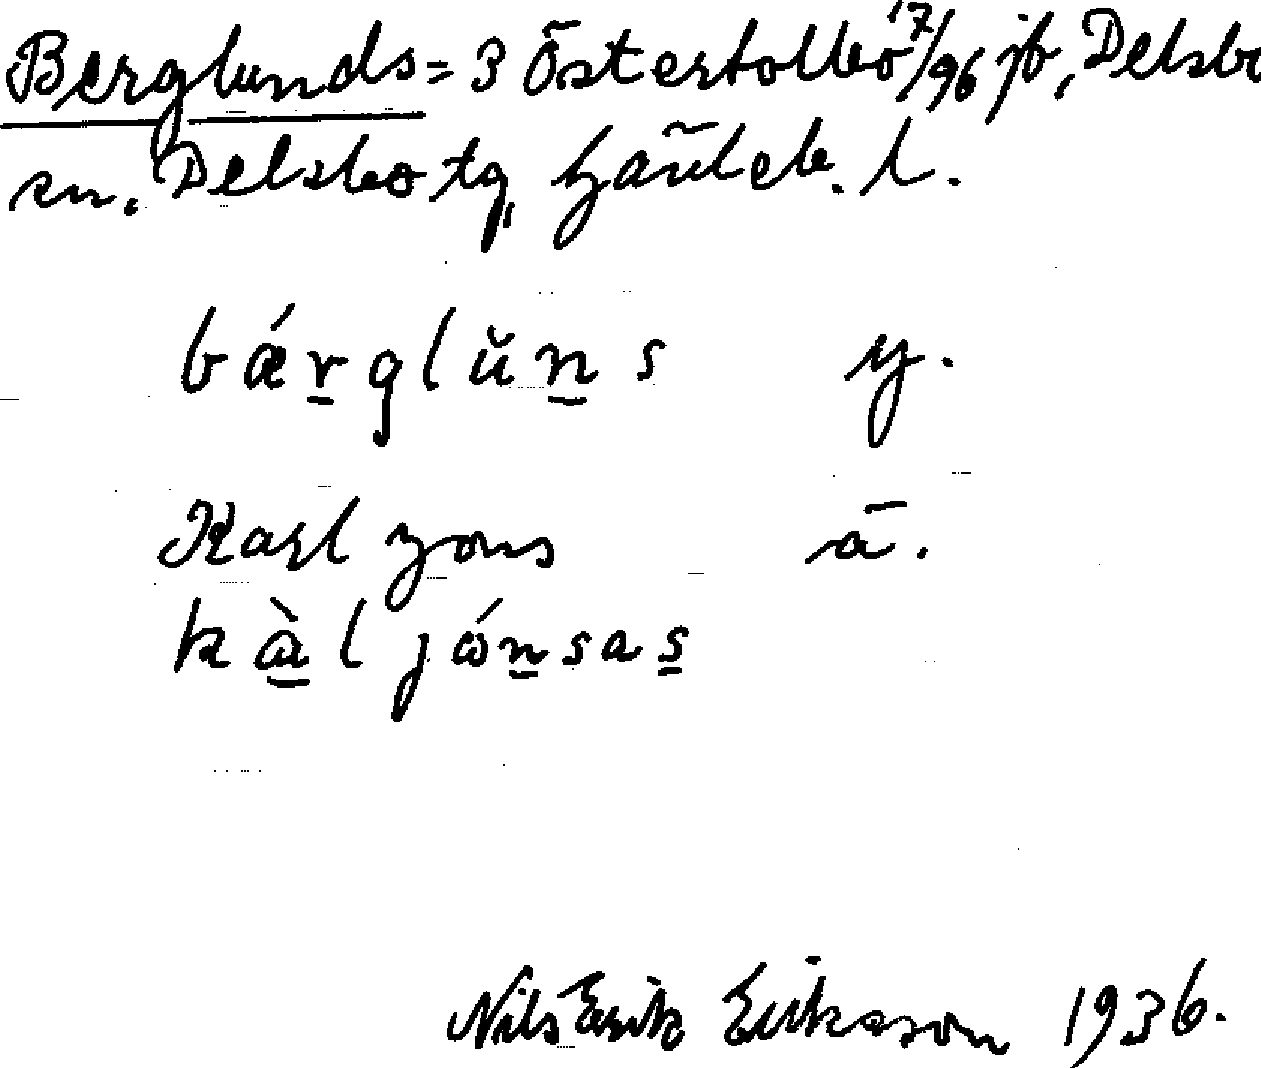 Berglunds = 3 Östertolbo 17/96 jb, Delsbo
sn. Delsbo tg, Gävleb. l.
bæ̀rglŭns y.
Karl Jons ä.
kàl jónsas
Nils Erik Eriksson 1936.